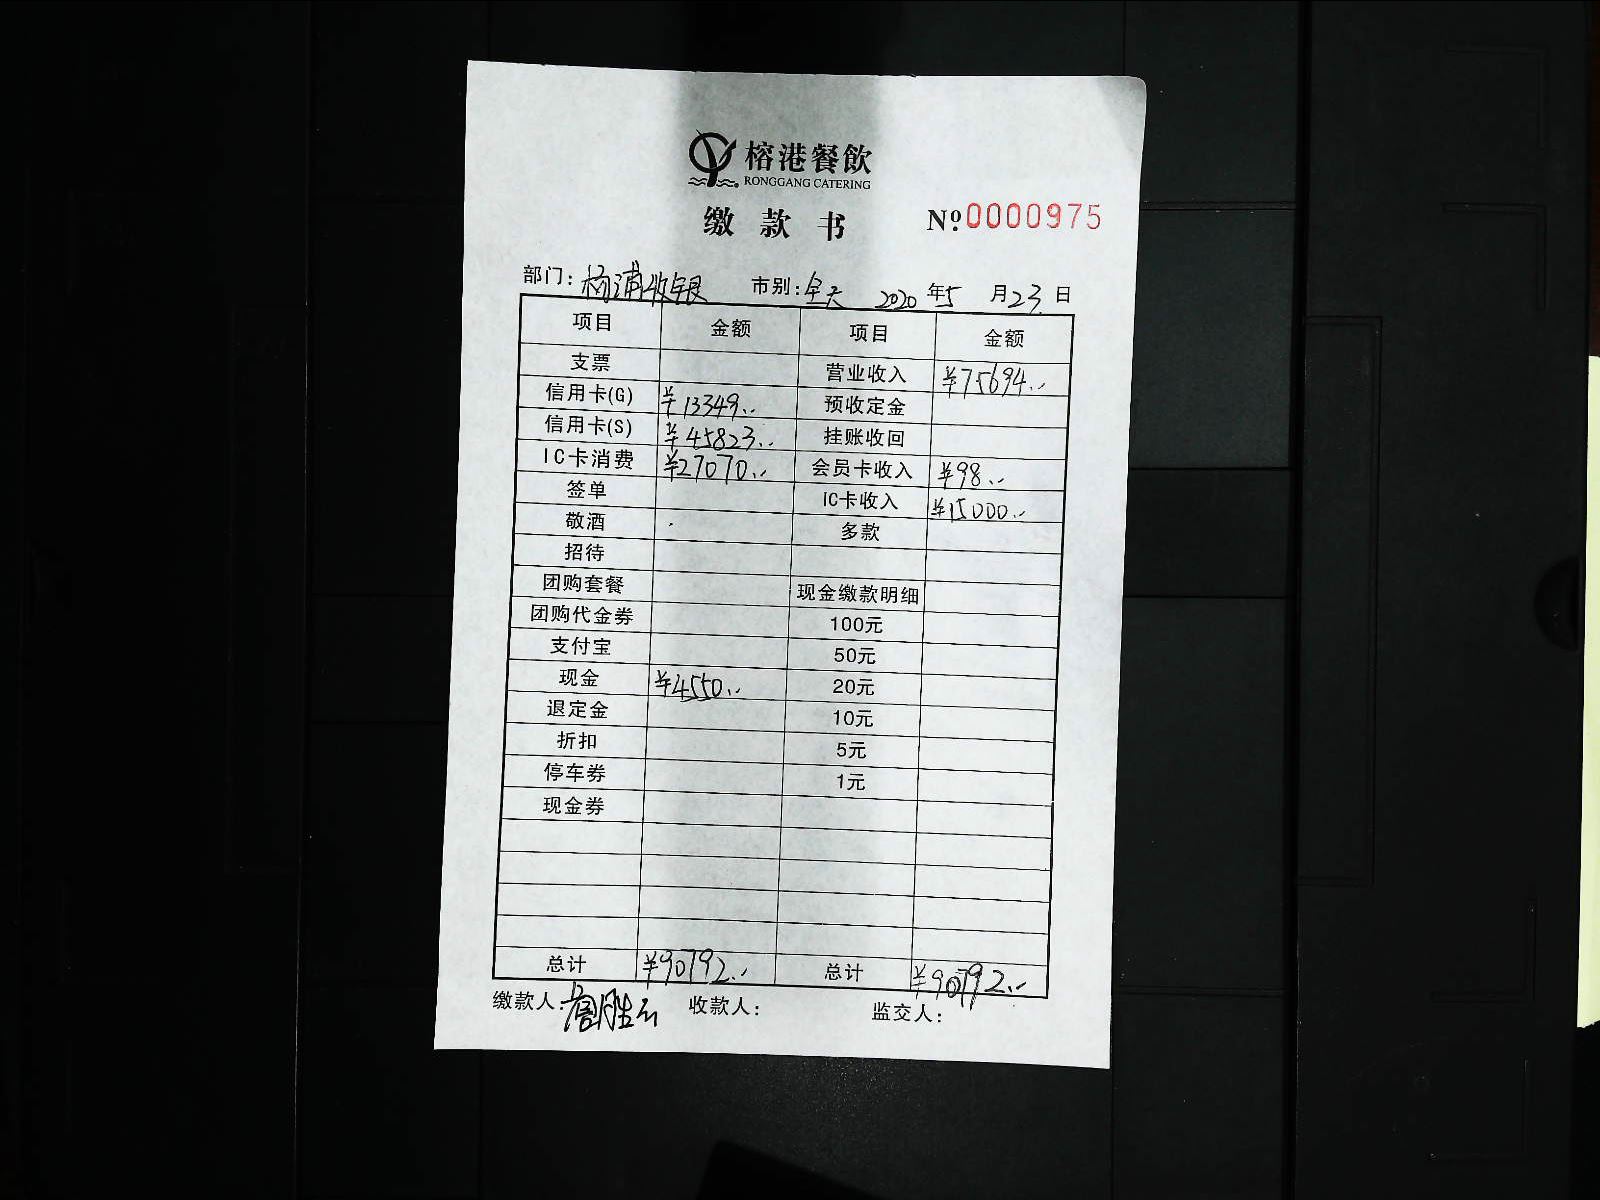 榕港餐飲
RONGGANG CATERING
缴款书 №0000975
部门: 杨浦收银 市别: 全天 2020年5月23日
项目 金额 项目 金额
支票 营业收入 ¥75694..
信用卡(G) ¥13349.. 预收定金
信用卡(S) ¥45823.. 挂账收回
IC卡消费 ¥27070.. 会员卡收入 ¥98..
签单 IC卡收入 ¥15000..
敬酒 多款
招待
团购套餐 现金缴款明细
团购代金券 100元
支付宝 50元
现金 ¥4550.. 20元
退定金 10元
折扣 5元
停车券 1元
现金券
总计 ¥90792.. 总计 ¥90792..
缴款人: 收款人: 监交人: